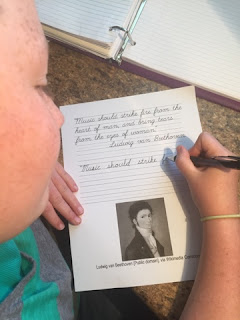 "Music should strike fire from the
heart of man, and bring tears
from the eyes of woman."
Ludwig van Beethoven
"Music should strike
Ludwig van Beethoven [Public domain], via Wikimedia Commons